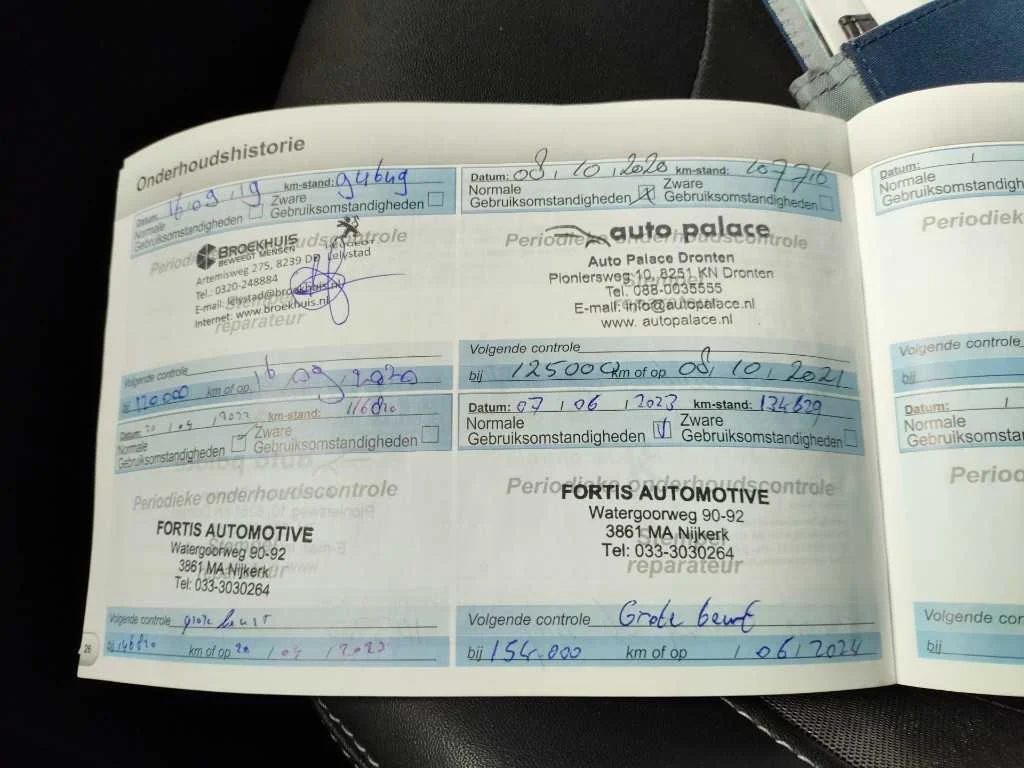 Onderhoudshistorie
Datum: 16, 09, 19 km-stand: 94649
Normale Gebruiksomstandigheden
Zware Gebruiksomstandigheden
BROEKHUIS
BEWEEGT MENSEN
PEUGEOT
Lelystad
Artemisweg 275, 8239 DD
Tel.: 0320-248884
E-mail: lelystad@broekhuis.nl
Internet: www.broekhuis.nl
Periodieke onderhoudscontrole
Stempel
reparateur
Volgende controle
bij 120.000 km of op 16, 09, 2020
Datum: 08, 10, 2020 km-stand: 107716
Normale Gebruiksomstandigheden X
Zware Gebruiksomstandigheden
Periodieke onderhoudscontrole
auto palace
Auto Palace Dronten
Pioniersweg 10, 8251 KN Dronten
Tel. 088-0035555
E-mail: info@autopalace.nl
www. autopalace.nl
Volgende controle
bij 125000 km of op 08, 10, 2021
Datum: 20 / 04 / 2022 km-stand: 116820
Normale Gebruiksomstandigheden
Zware Gebruiksomstandigheden
Periodieke onderhoudscontrole
FORTIS AUTOMOTIVE
Watergoorweg 90-92
3861 MA Nijkerk
Tel: 033-3030264
Stempel
reparateur
Volgende controle grote beurt
bij 146820 km of op 20 / 04 / 2023
26
Datum: 07 / 06 / 2023 km-stand: 134629
Normale Gebruiksomstandigheden
Zware Gebruiksomstandigheden
Periodieke onderhoudscontrole
FORTIS AUTOMOTIVE
Watergoorweg 90-92
3861 MA Nijkerk
Tel: 033-3030264
Stempel
reparateur
Volgende controle Grote beurt
bij 154.000 km of op / 06 / 2024
Datum: /
Normale
Gebruiksomstan
Periodieke
Volgende controle
bij
Datum: /
Normale
Gebruiksomstan
Periodi
Volgende co
bij